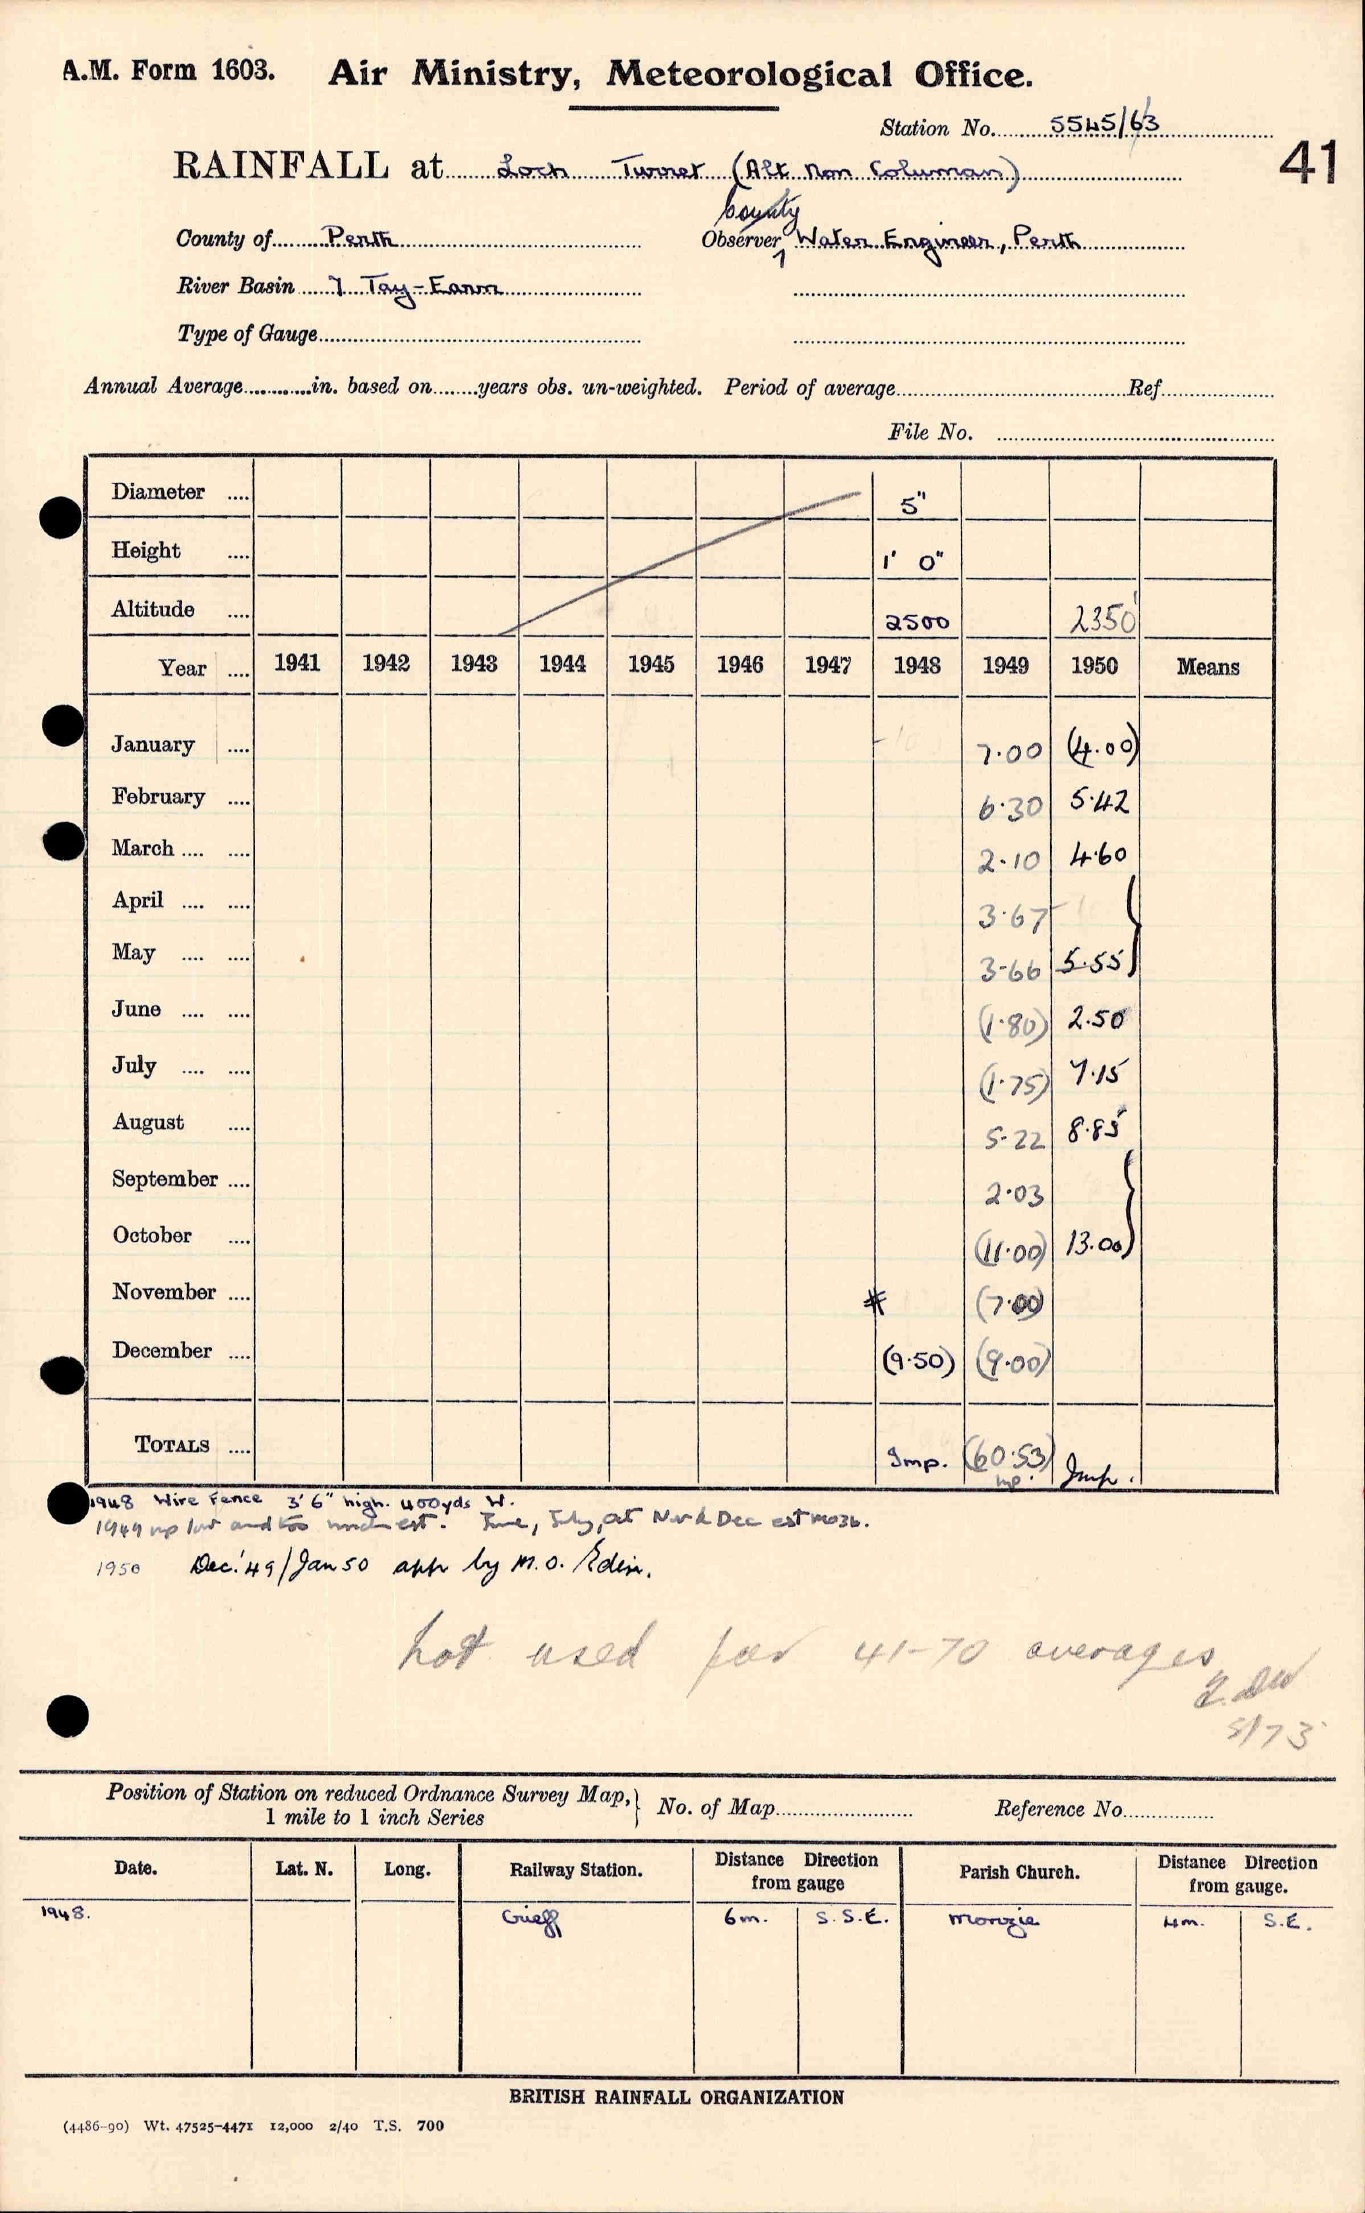 A.M. Form 1603. Air Ministry, Meteorological Office.
Station No. 5545/63
41
RAINFALL at Loch Turret (Alt Non Columan)
County
County of Perth Observer Water Engineer, Perth
River Basin 7 Tay-Earn
Type of Gauge
Annual Average in. based on years obs. un-weighted. Period of average Ref
File No.
Diameter 5"
Height 1' 0"
Altitude 2500 2350'
Year 1941 1942 1943 1944 1945 1946 1947 1948 1949 1950 Means
January 7.00 (4.00)
February 6.30 5.42
March 2.10 4.60
April 3.67
May 3.66 5.55 }
June (1.80) 2.50
July (1.75) 7.15
August 5.22 8.85
September 2.03
October (11.00) 13.00 }
November # (7.00)
December (9.50) (9.00)
TOTALS Imp. (60.53) Imp.
1948 Wire Fence 3' 6" high. 400yds W.
1949 low and too much est. June, July, Nov & Dec est
1950 Dec. '49/Jan 50 app by M.O. Edin.
not used for 41-70 averages
5/73
Position of Station on reduced Ordnance Survey Map, } No. of Map Reference No.
1 mile to 1 inch Series
Date. Lat. N. Long. Railway Station. Distance Direction from gauge Parish Church. Distance Direction from gauge.
1948. Crieff 6m. S.S.E. Monzie 4m. S.E.
BRITISH RAINFALL ORGANIZATION
(4486-90) Wt. 47525-4471 12,000 2/40 T.S. 700